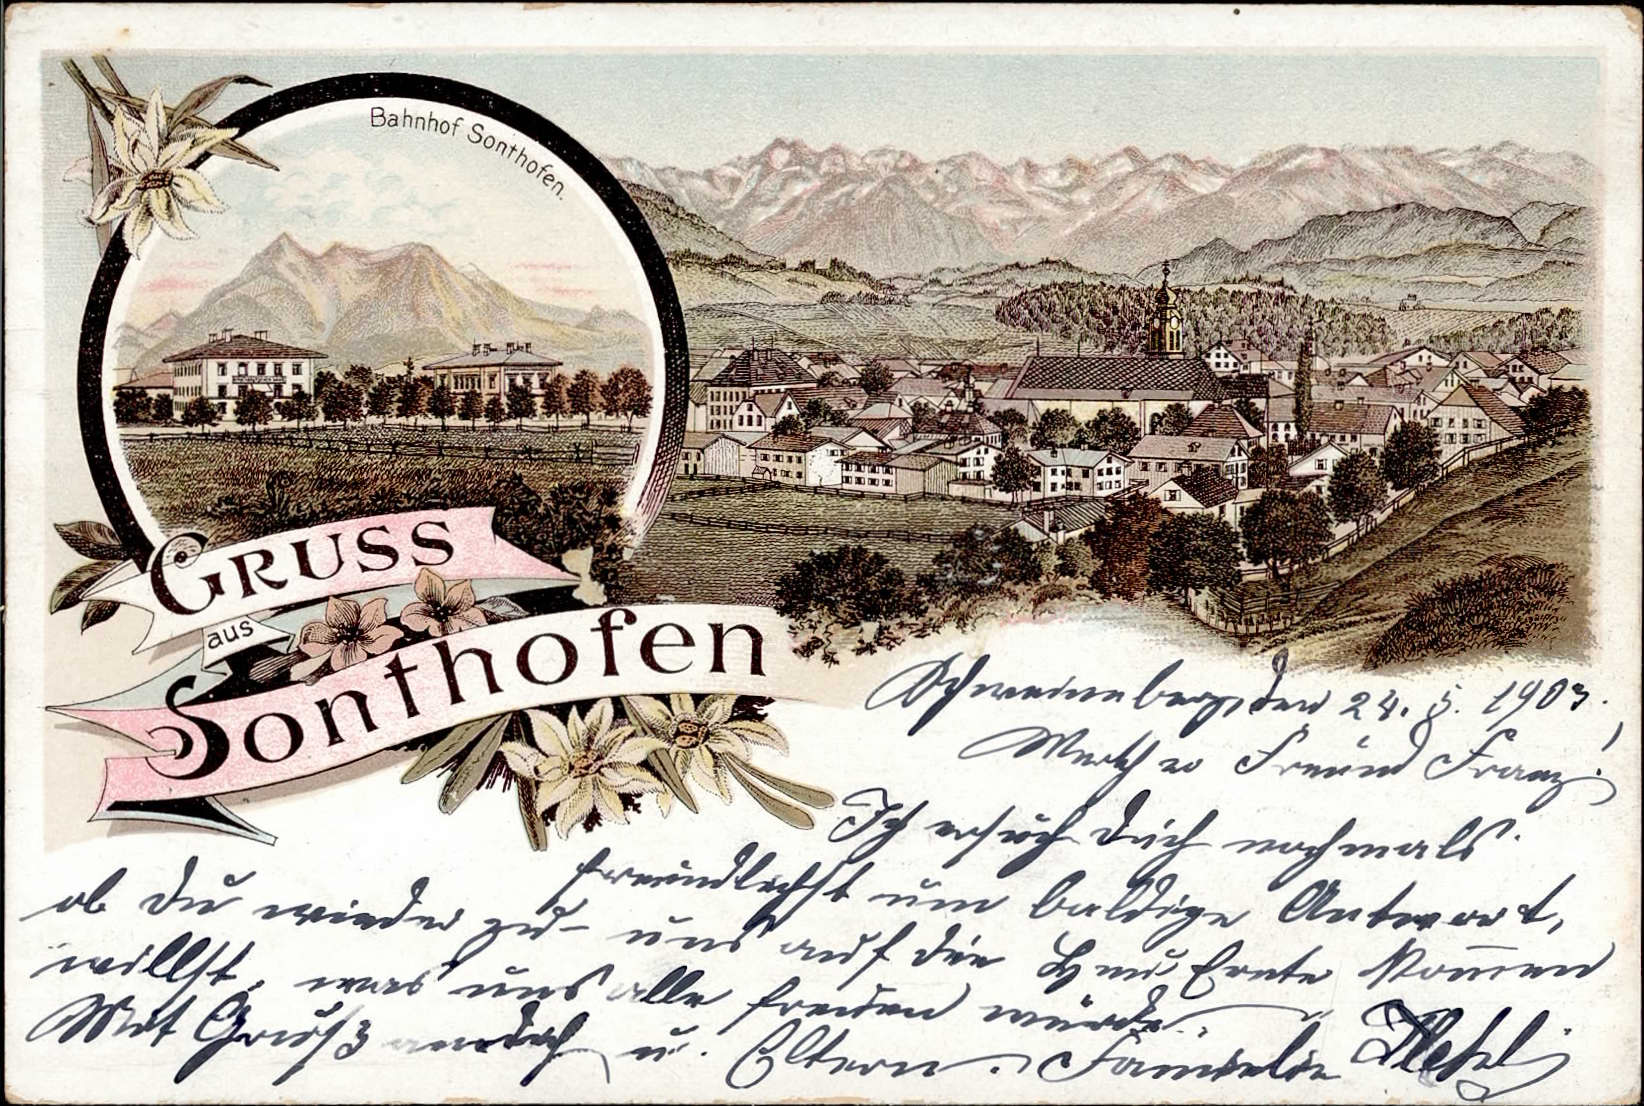 Bahnhof Sonthofen.
Gruss
aus
Sonthofen
Schweineberg, den 24. 5. 1903.
Werther Freund Franz!
Ich ersuch Dich nochmals
freundlichst um baldige Antwort,
ob Du wieder zu uns auf die Heu Ernte kommen
willst, was uns alle freuen würde.
Mit Gruß an Dich u. Eltern. Familie